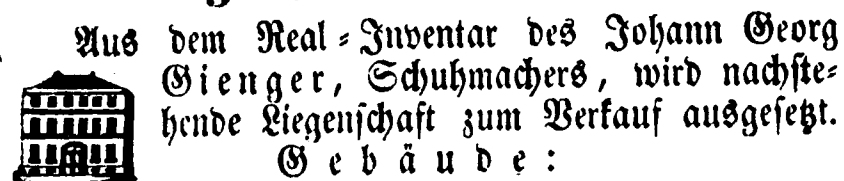 Aus dem Real-Inventar des Johann Georg
Gienger, Schuhmachers, wird nachste-
hende Liegenschaft zum Verkauf ausgesetzt.
Gebäude: